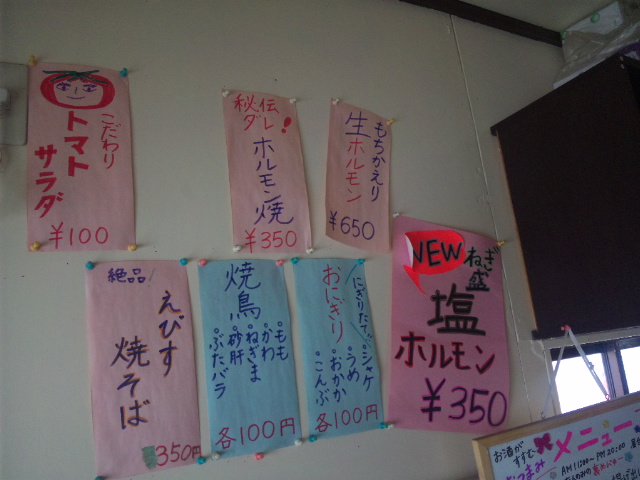 こだわり
トマト
サラダ
¥100
秘伝
ダレ!
ホルモン焼
¥350
もちかえり
生ホルモン
¥650
絶品!
えびす
焼そば
350円
焼鳥
もも
かわ
ねぎま
砂肝
ぶたバラ
各100円
にぎりたて
おにぎり
シャケ
うめ
おかか
こんぶ
各100円
NEW
ねぎ盛
塩
ホルモン
¥350
お酒が
すすむ
おつまみ
メニュー